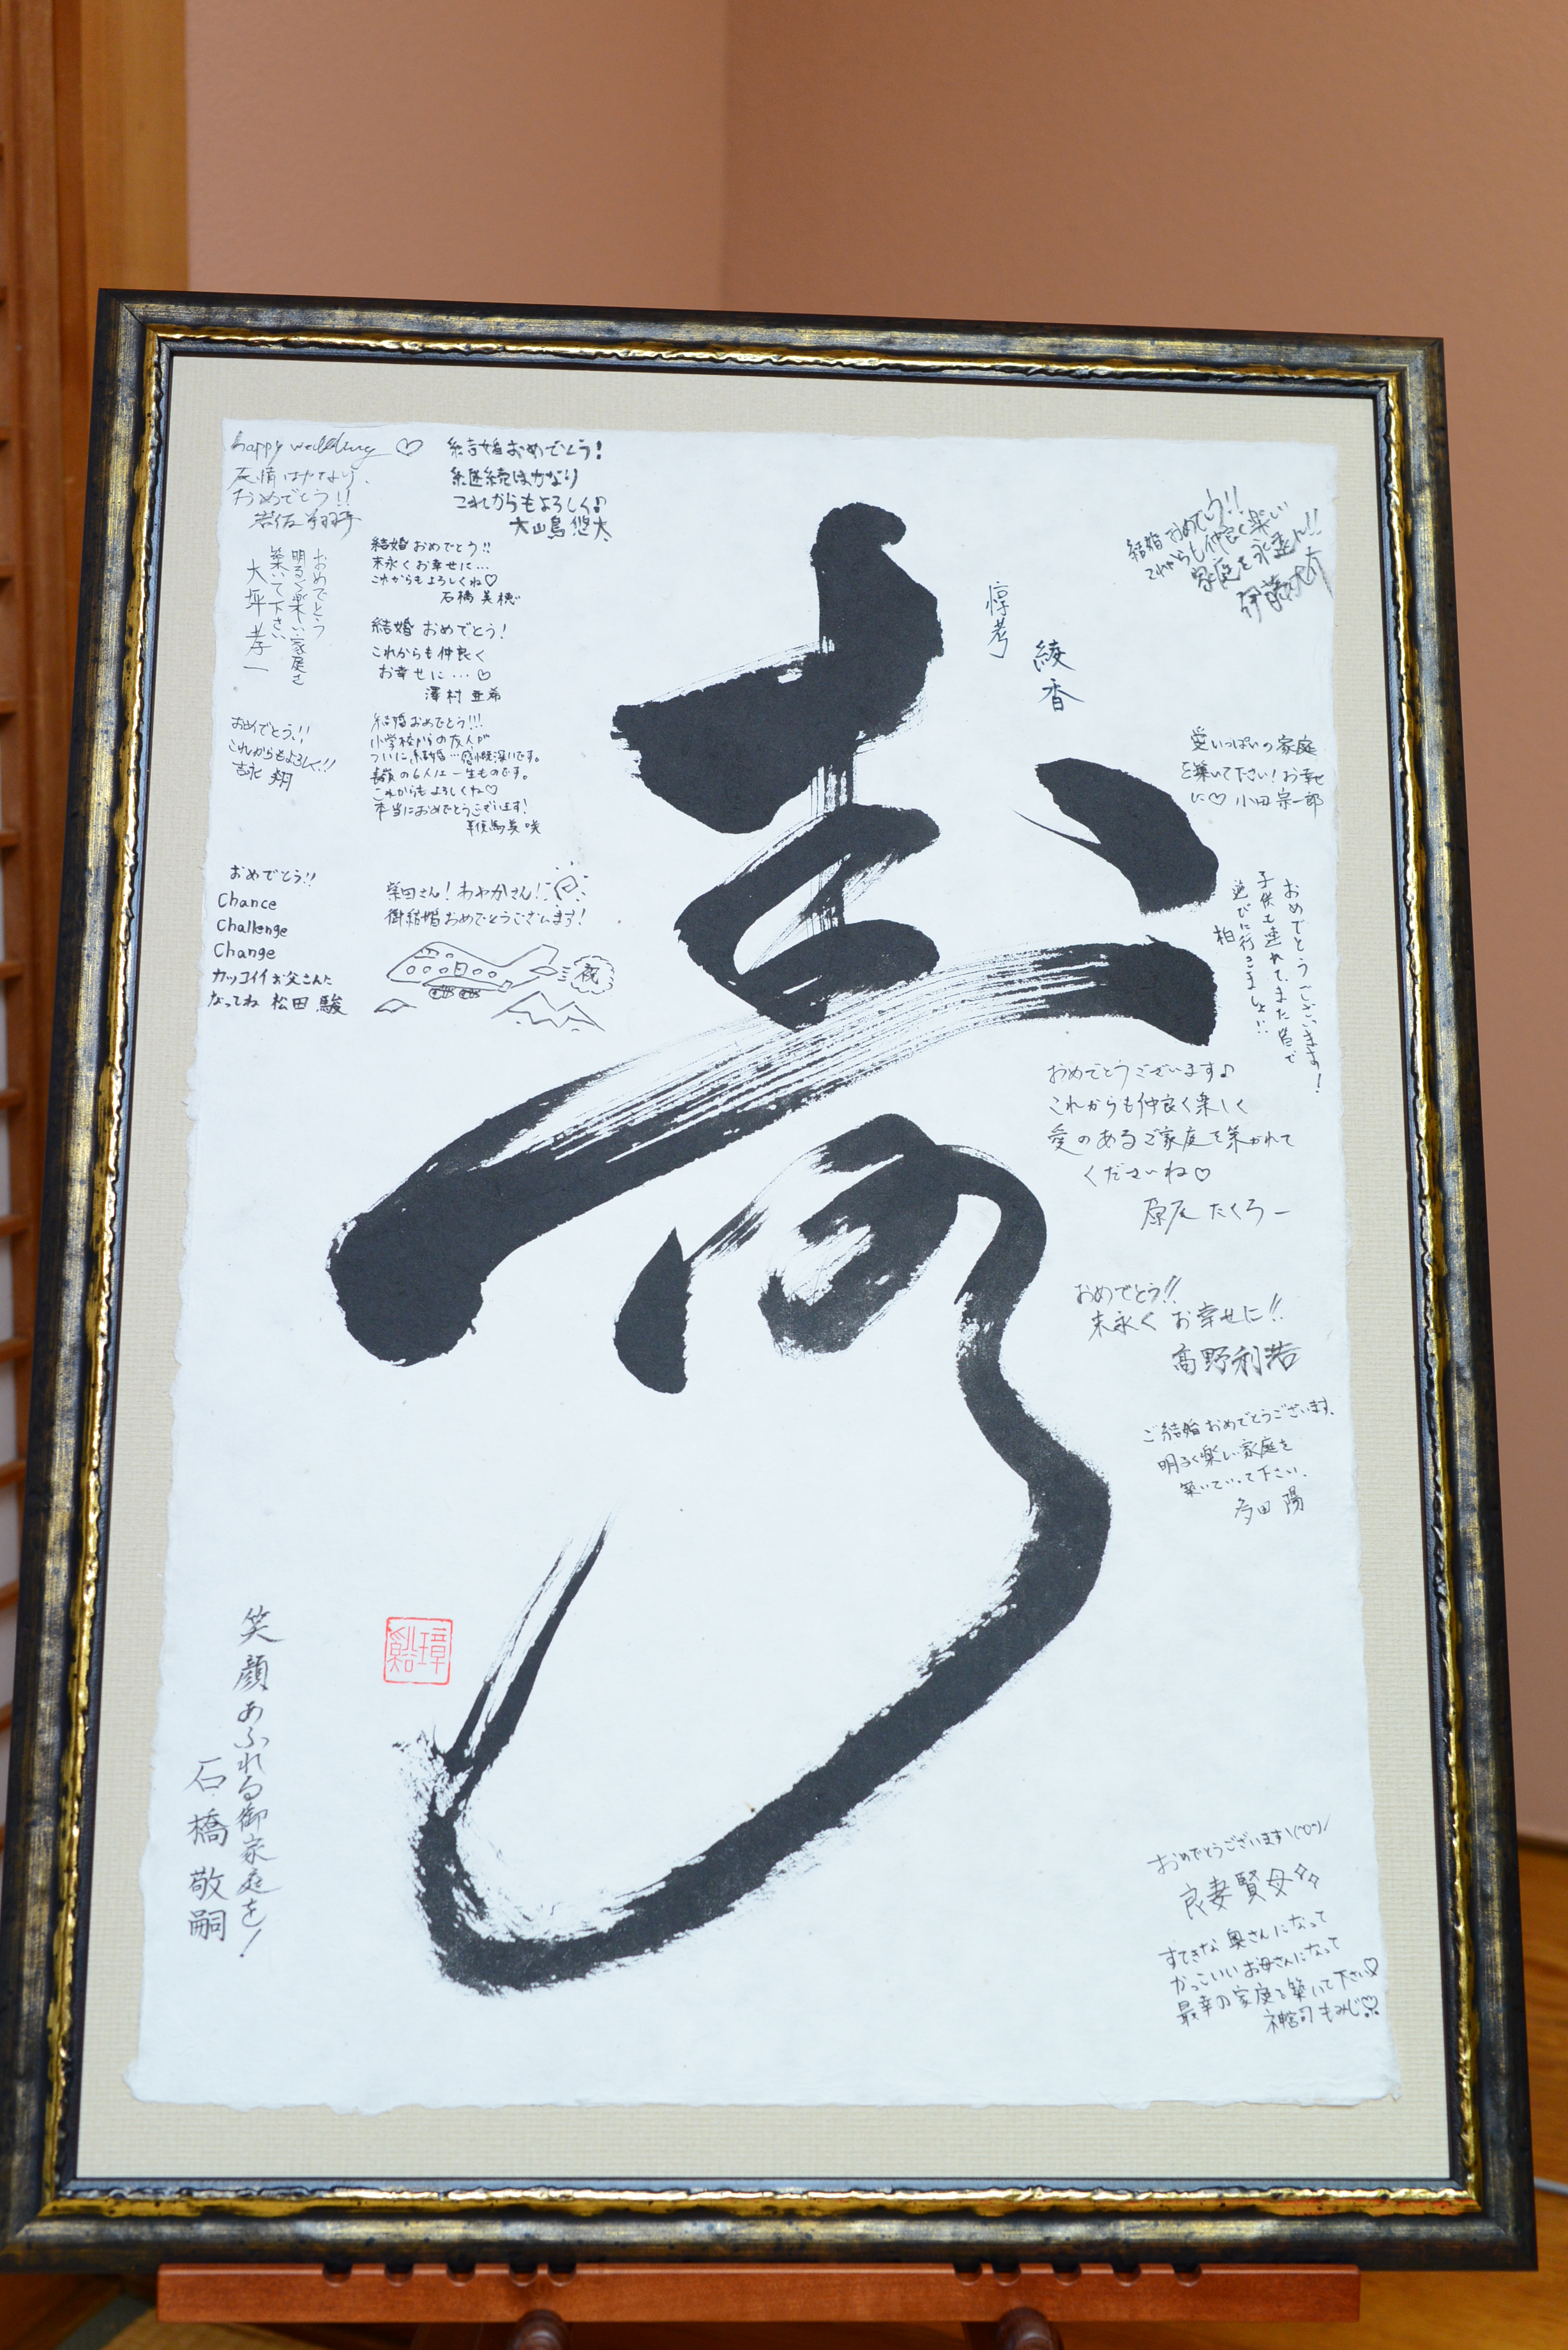 寿
惇考
綾香
happy wedding ♡
友情はかなり、
おめでとう!!
結婚おめでとう!
継続はかなり
これからもよろしく♪
大山鳥 悠太
結婚おめでとう!!
末永くお幸せに…
これからもよろしくね♡
石橋 美穂
おめでとう
明るく楽しい家庭を
築いて下さい
大坪 孝一
結婚 おめでとう!
これからも仲良く
お幸せに…♡
澤村 亜希
おめでとう!!
これからもよろしく!!
吉永 翔
結婚おめでとう!!!
小学校からの友人が
ついに結婚…感慨深いです。
の6人は一生ものです。
これからもよろしくね♡
本当におめでとうございます!
おめでとう!!
Chance
Challenge
Change
カッコイイお父さんに
なってね 松田 駿
柴田さん! あやかさん!
御結婚おめでとうございます!
祝
結婚おめでとう!!
これからも仲良く楽しい
家庭を
伊藤
愛いっぱいの家庭
を築いて下さい!お幸せ
に♡ 小田 宗一郎
おめでとうございます!
子供も連れて、また皆で
遊びに行きましょ!!
柏
おめでとうございます♪
これからも仲良く楽しく
愛のあるご家庭を築かれて
くださいね♡
原尻 たくろー
おめでとう!!
末永く お幸せに!!
高野利浩
ご結婚おめでとうございます。
明るく楽しい家庭を
築いていって下さい。
多田 陽
笑顔あふれる御家庭を!
石橋 敬嗣
おめでとうございます\(^O^)/
良妻賢母
すてきな奥さんになって
かっこいいお母さんになって
最幸の家庭を築いて下さい♡
神宮司 もみじ